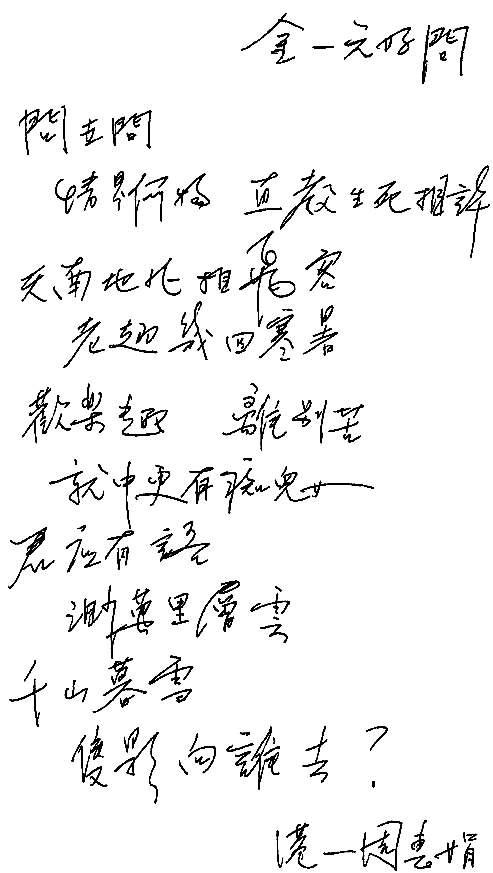 金一元好問
問世間
情是何物 直教生死相許
天南地北相飛客
老翅幾回寒暑
歡樂趣 離別苦
就中更有痴兒女
君應有語
渺萬里層雲
千山暮雪
隻影向誰去？
港一周惠娟